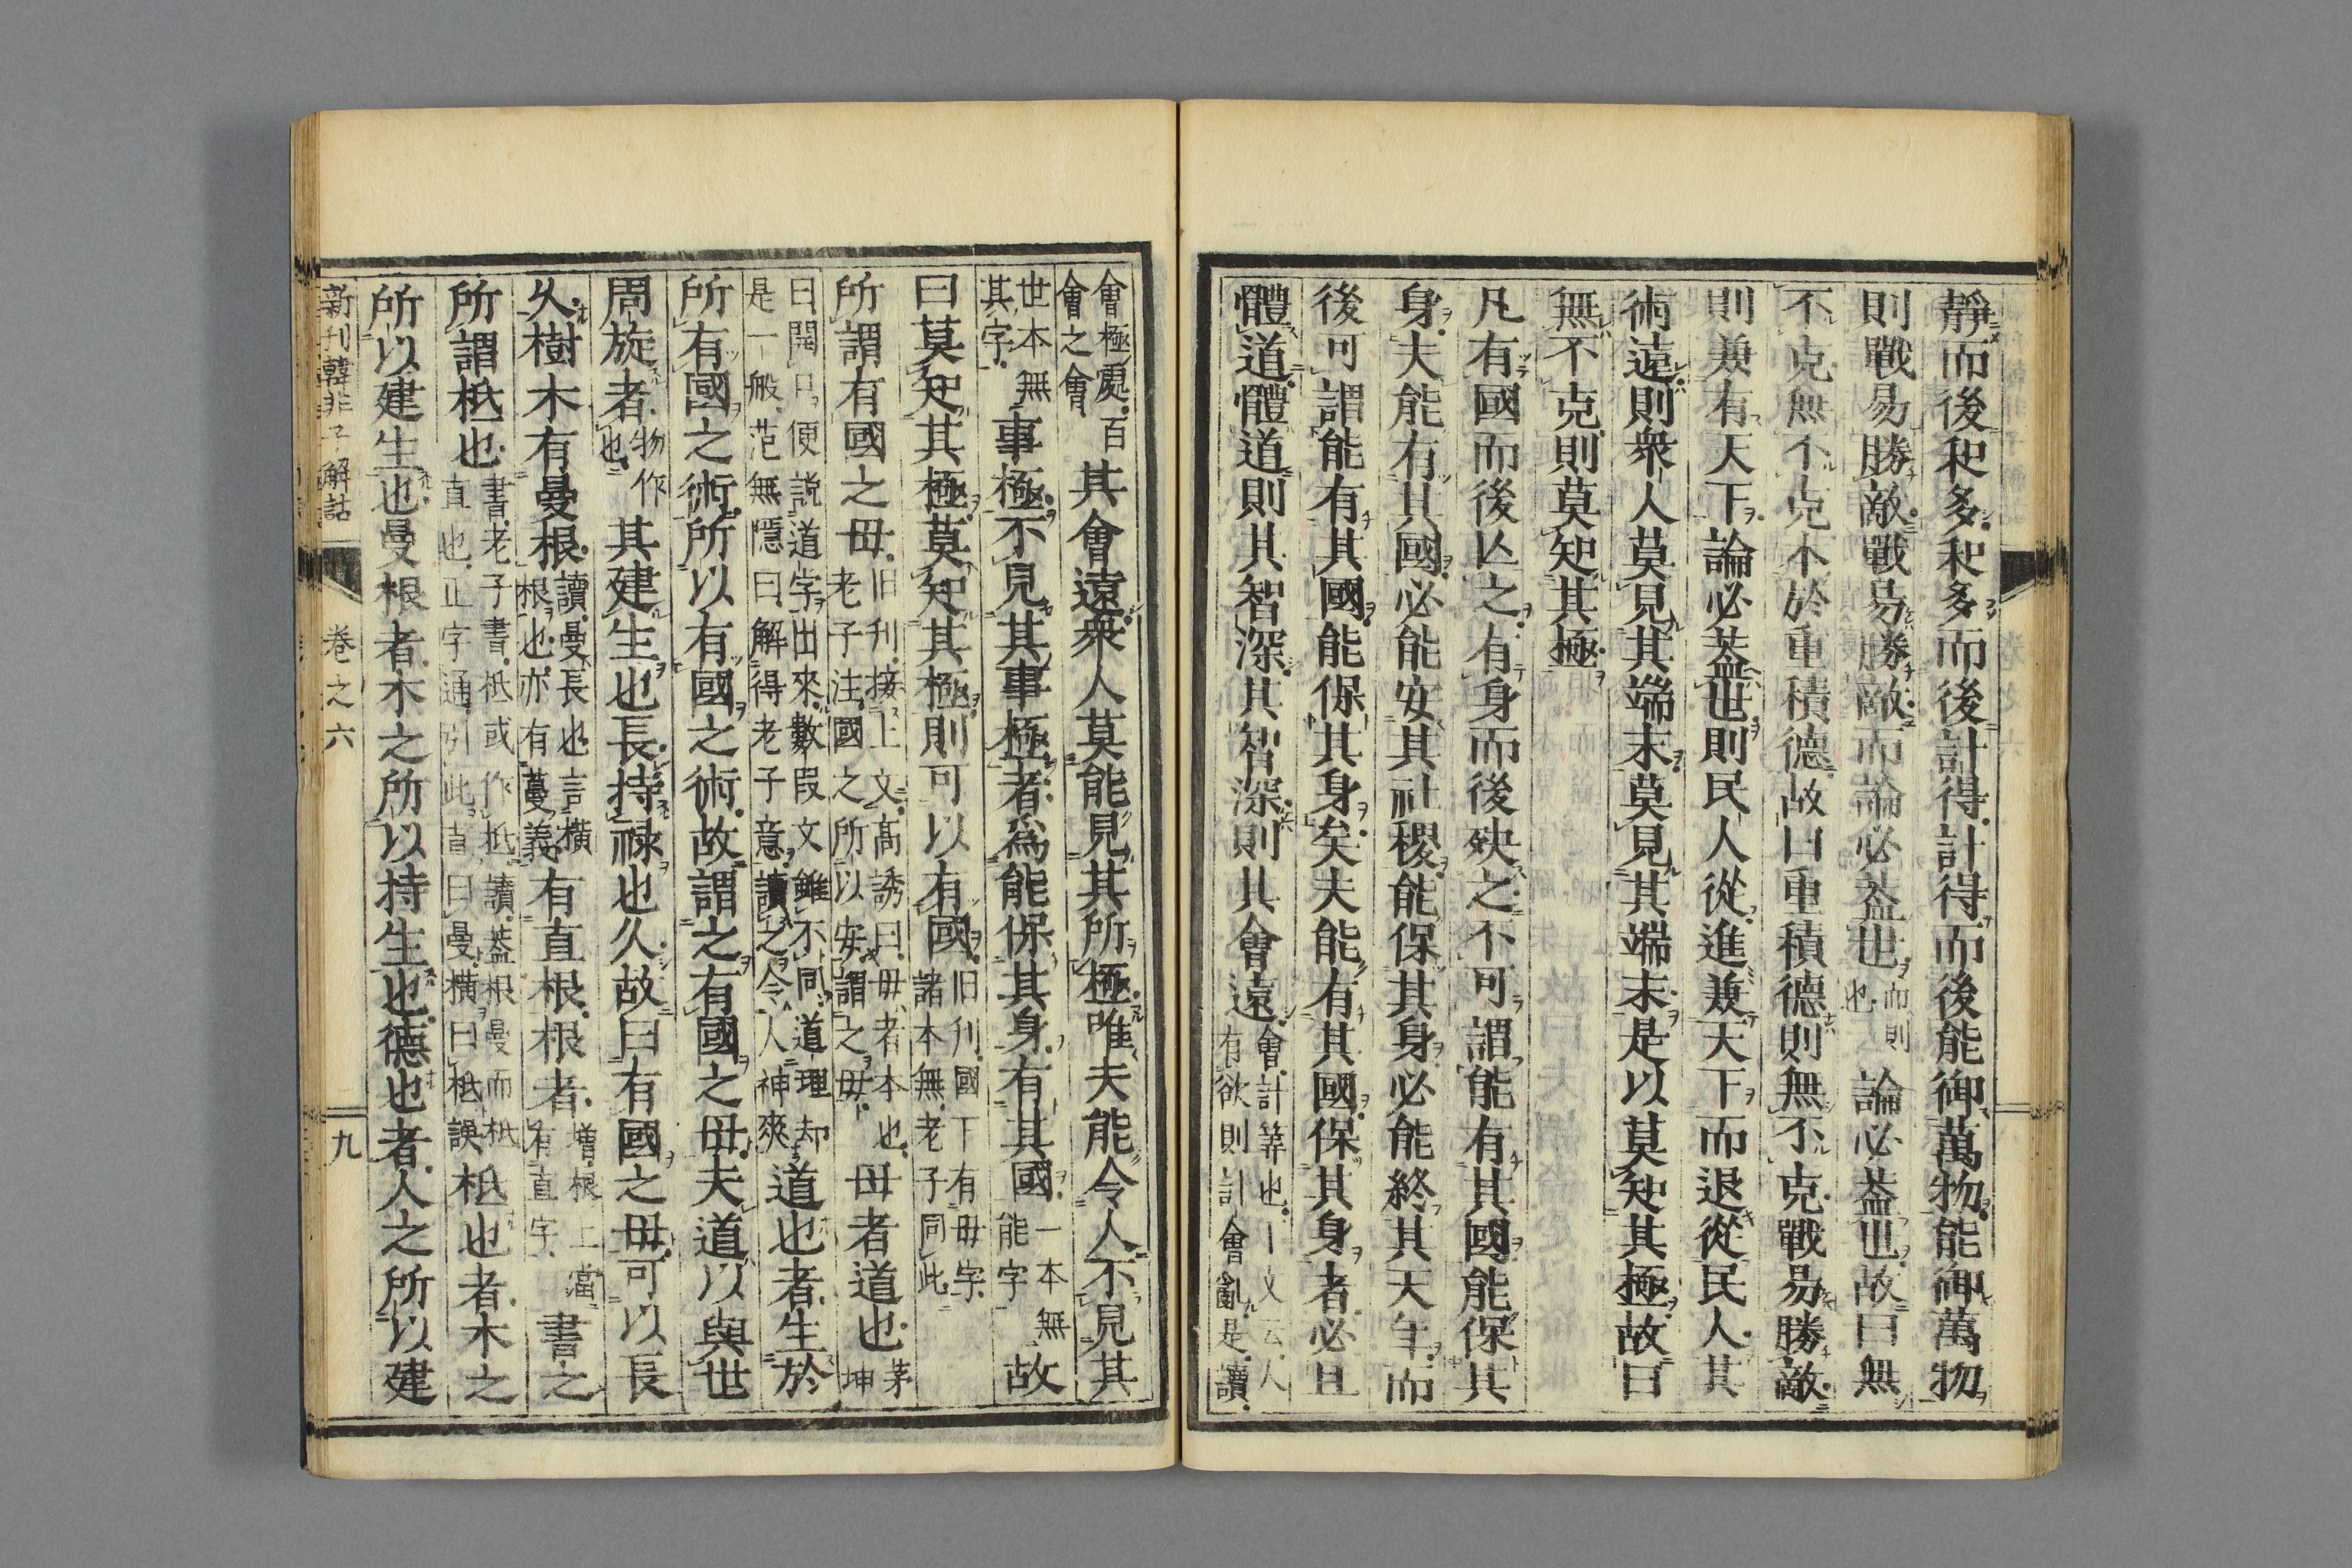 靜而後和多和多而後計得計得而後能御萬物能御萬物
則戰易勝敵戰易勝敵而論必蓋世而則也論必蓋世故曰無
不克無不克本於重積德故曰重積德則無不克戰易勝敵
則兼有天下論必蓋世則民人從進兼天下而退從民人其
術遠則衆人莫見其端末莫見其端末是以莫知其極故曰
無不克則莫知其極
凡有國而後亾之有身而後殃之不可謂能有其國能保其
身夫能有其國必能安其社稷能保其身必能終其天年而
後可謂能有其國能保其身矣夫能有其國保其身者必且
體道體道則其智深其智深則其會遠會計筭也一文云人有欲則計會亂是讀
會極處百會之會其會遠衆人莫能見其所極唯夫能令人不見其
世本無其字事極不見其事極者爲能保其身有其國一本無能字故
曰莫知其極莫知其極則可以有國旧刋國下有毋字諸本無老子同此
所謂有國之毋旧刋接上文高誘曰毋者本也老子注國之所以安謂之毋毋者道也茅坤
曰開口便説道字出來數叚文雖不同道理却是一般范無隱曰解得老子意讀之令人神爽道也者生於
所有國之術所以有國之術故謂之有國之毋夫道以與世
周旋者物作也其建生也長持禄也久故曰有國之毋可以長
久樹木有曼根讀曼長也言橫根也亦有蔓義有直根根者増根上當有直字書之
所謂柢也書老子書柢或作抵讀蓋根曼而柢直也正字通引此直曰曼橫曰柢誤柢也者木之
所以建生也曼根者木之所以持生也德也者人之所以建
新刊韓非子解詁
卷之六
九